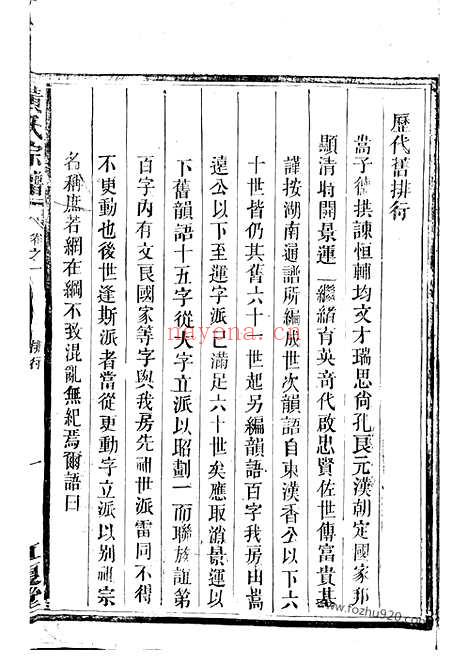 歷代舊排行
嵩子德拱諫恒輔均文才瑞思尚孔良元漢朝定國家邦
顯清時開景運 繼緒有英奇代啟忠賢佐世傳富貴基
謹按湖南通譜所編成世次韻語自東漢香公以下六
十世皆仍其舊六十一世起另編韻語百字我房由嵩
遠公以下至運字派已滿足六十世矣應取消景運以
下舊韻語十五字從大字立派以昭劃一而聯族誼第
百字內有文良國家等字與我房先祖世派雷同不得
不更動也後世逢斯派者當從更動字立派以別祖宗
名稱庶若網在綱不致混亂無紀焉爾語曰
黃氏宗譜
卷之一
排行
一
江夏堂
nayona.cn
www.fozhu920.com